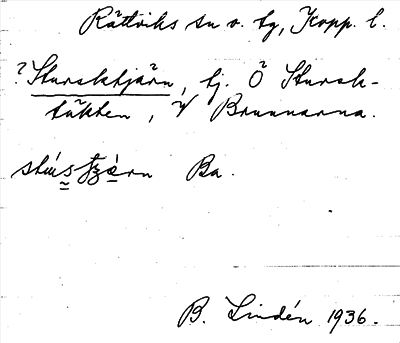 Rättviks sn o. tg, Kopp. l.
? Sturektjärn, tj. Ö Sturek-
täkten, V Brunnarna.
Ba.
B. Lindén 1936.